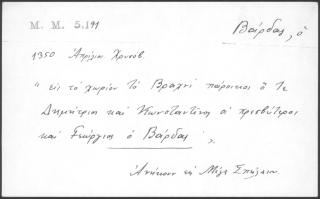 Μ. Μ. 5.191
Βάρδας, ὁ
1350 Ἀπρίλιος. Χρυσόβ.
" εἰς τὸ χωρίον τὸ Βραχνὶ πάροικοι ὅ τε
Δημήτριος καὶ Κωνσταντῖνος οἱ πρεσβύτεροι
καὶ Γεώργιος ὁ Βάρδας ".
Ἀνήκουν εἰς Μέγα Σπήλαιον.